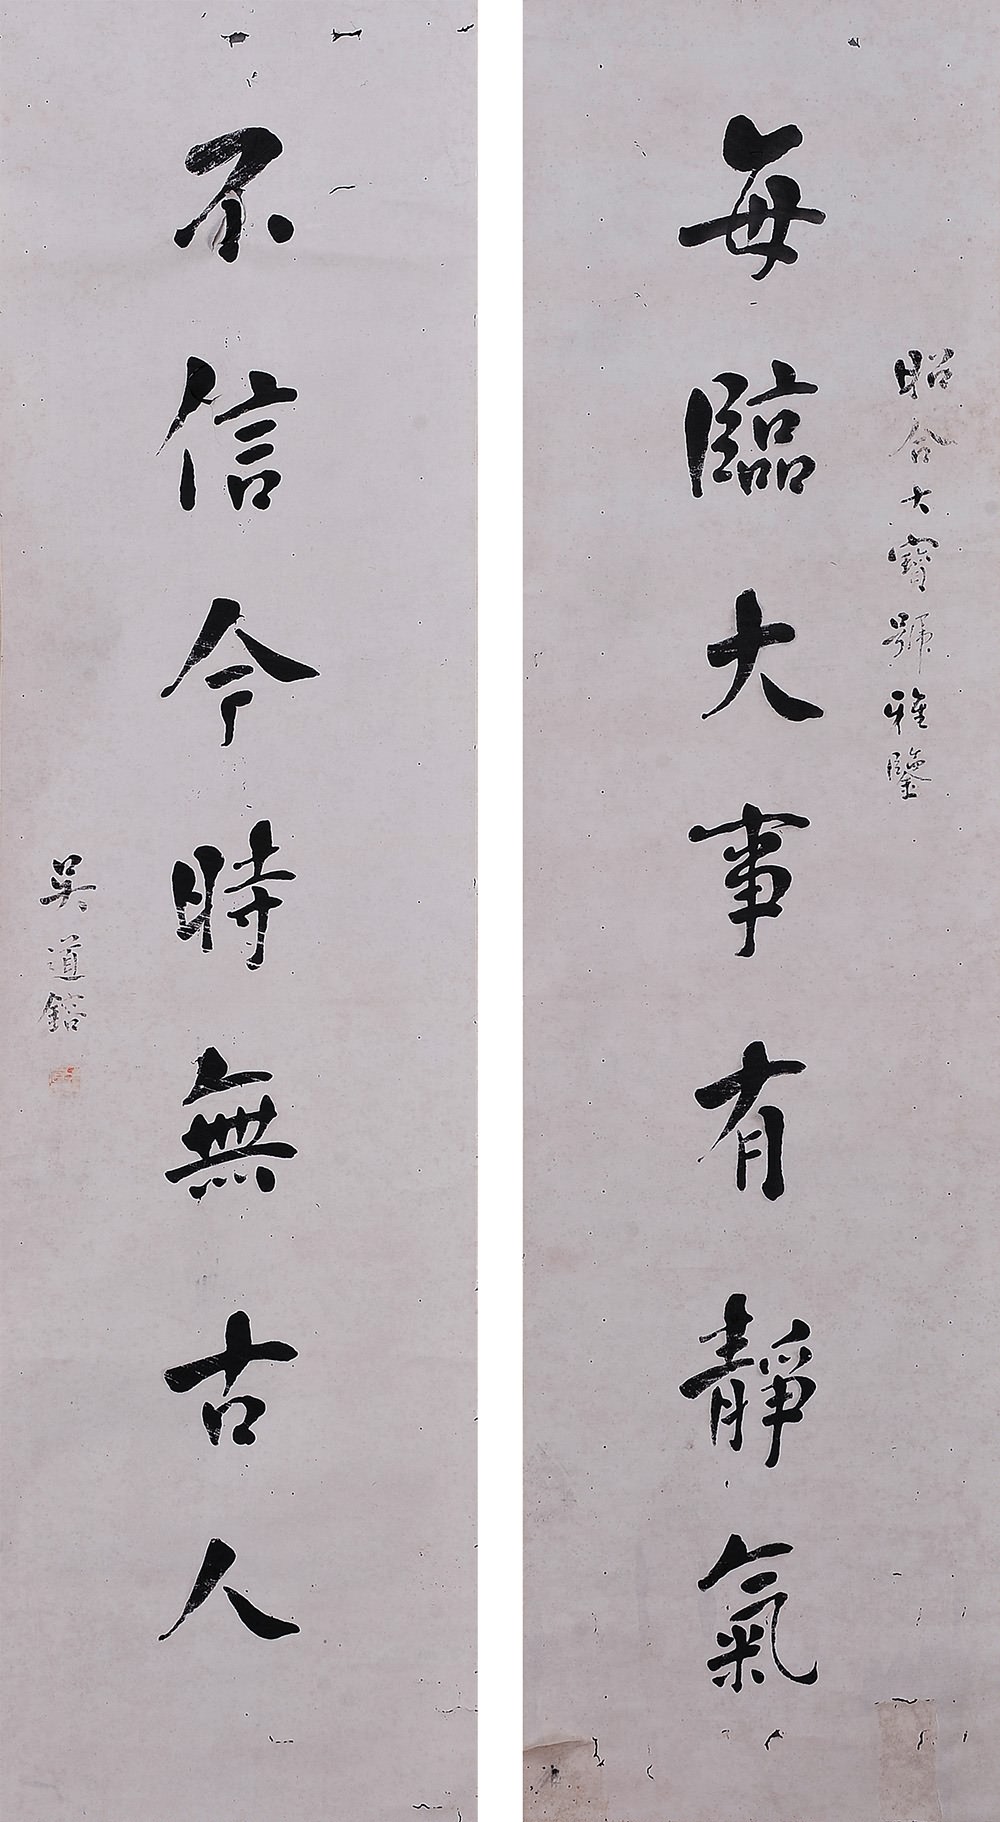 昭合大寶號雅鑒
每臨大事有靜氣
不信今時無古人
吳道鎔